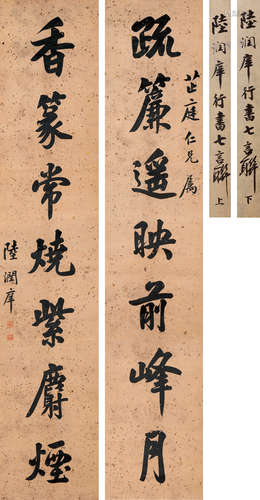 疏簾遥映前峰月
芷庭仁兄屬
香篆常燒紫麝煙
陸潤庠
陸潤庠行書七言聯 上
陸潤庠行書七言聯 下